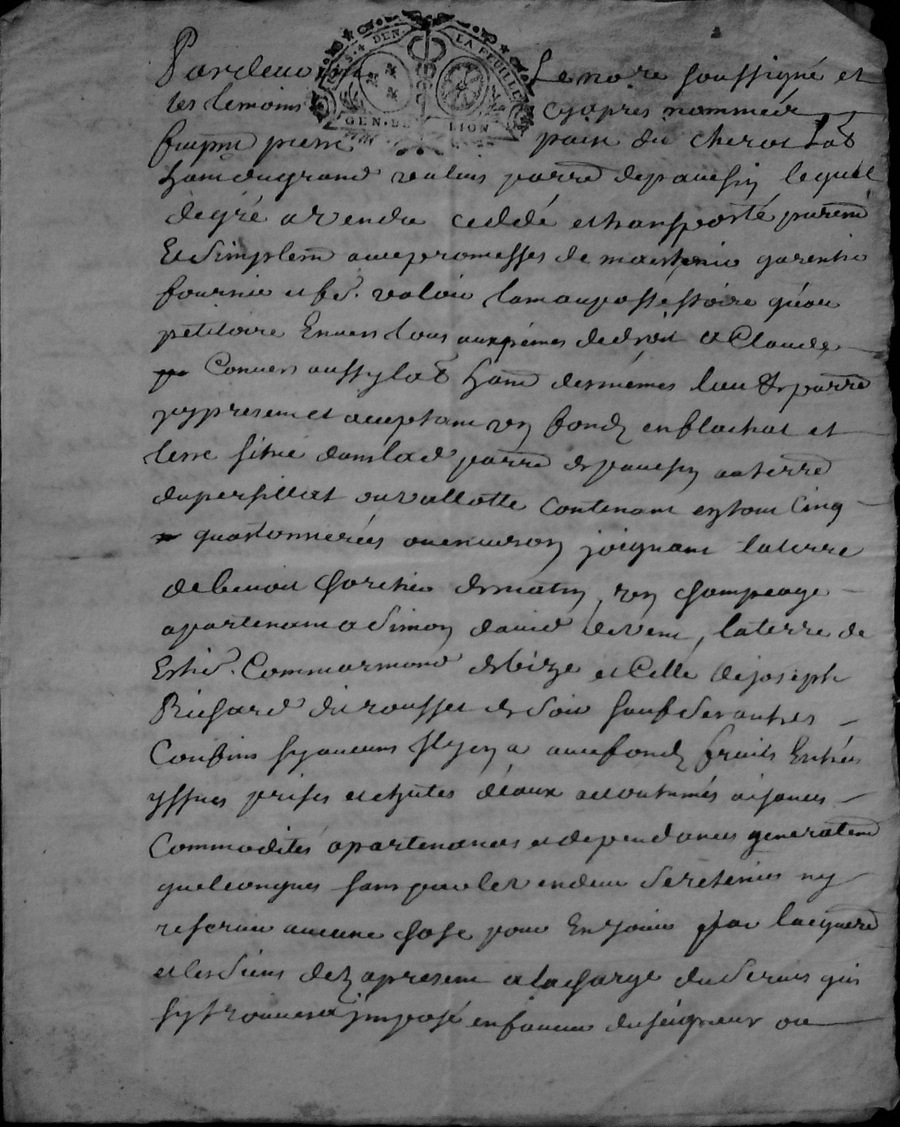 S. 4 DEN. LA FEUILLE
GEN. DE LION
Pardevant Le no.re soussigné et
les temoins cyapres nommés
fut p.nt pierre du cherot lab
hant du grand parr.e de pauessin lequel
de gré a vendu ceddé et transporté purem.t
Et Simplem.t avec promesses de maintenir garentir
fournir et valoir tam au possessoire qu'au
petitoire Envers tous aux peines de droit a Claude
Convers aussy lab hant des mêmes lieu & parr.e
cy present et acceptant un fondz en blachat et
terre situé dans lad parr.e de pauessin au terre
du persillat ou vallotte Contenant en tout Cinq
quartonnerées ou environ joignant la terre
de benoit de matin, un champeage
apartenant a Simon david de vent, la terre de
Est.e Commarmond de bize et Celle de joseph
Richard du rousset de Soir Sauf Ses autres
Confins Sy aucuns Il y en a avec fondz fruits Entrées
yssues prises et chutes d'eaux accoutumés aisances
Commodités apartenances et dependances generalem.t
quelconques sans par le vendeur Se retenir ny
reserver aucune chose pour En jouir par l'acquereur
et les Siens dez apresent a la charge du Servis qui
sy trouvera imposé en faveur du seigneur ou